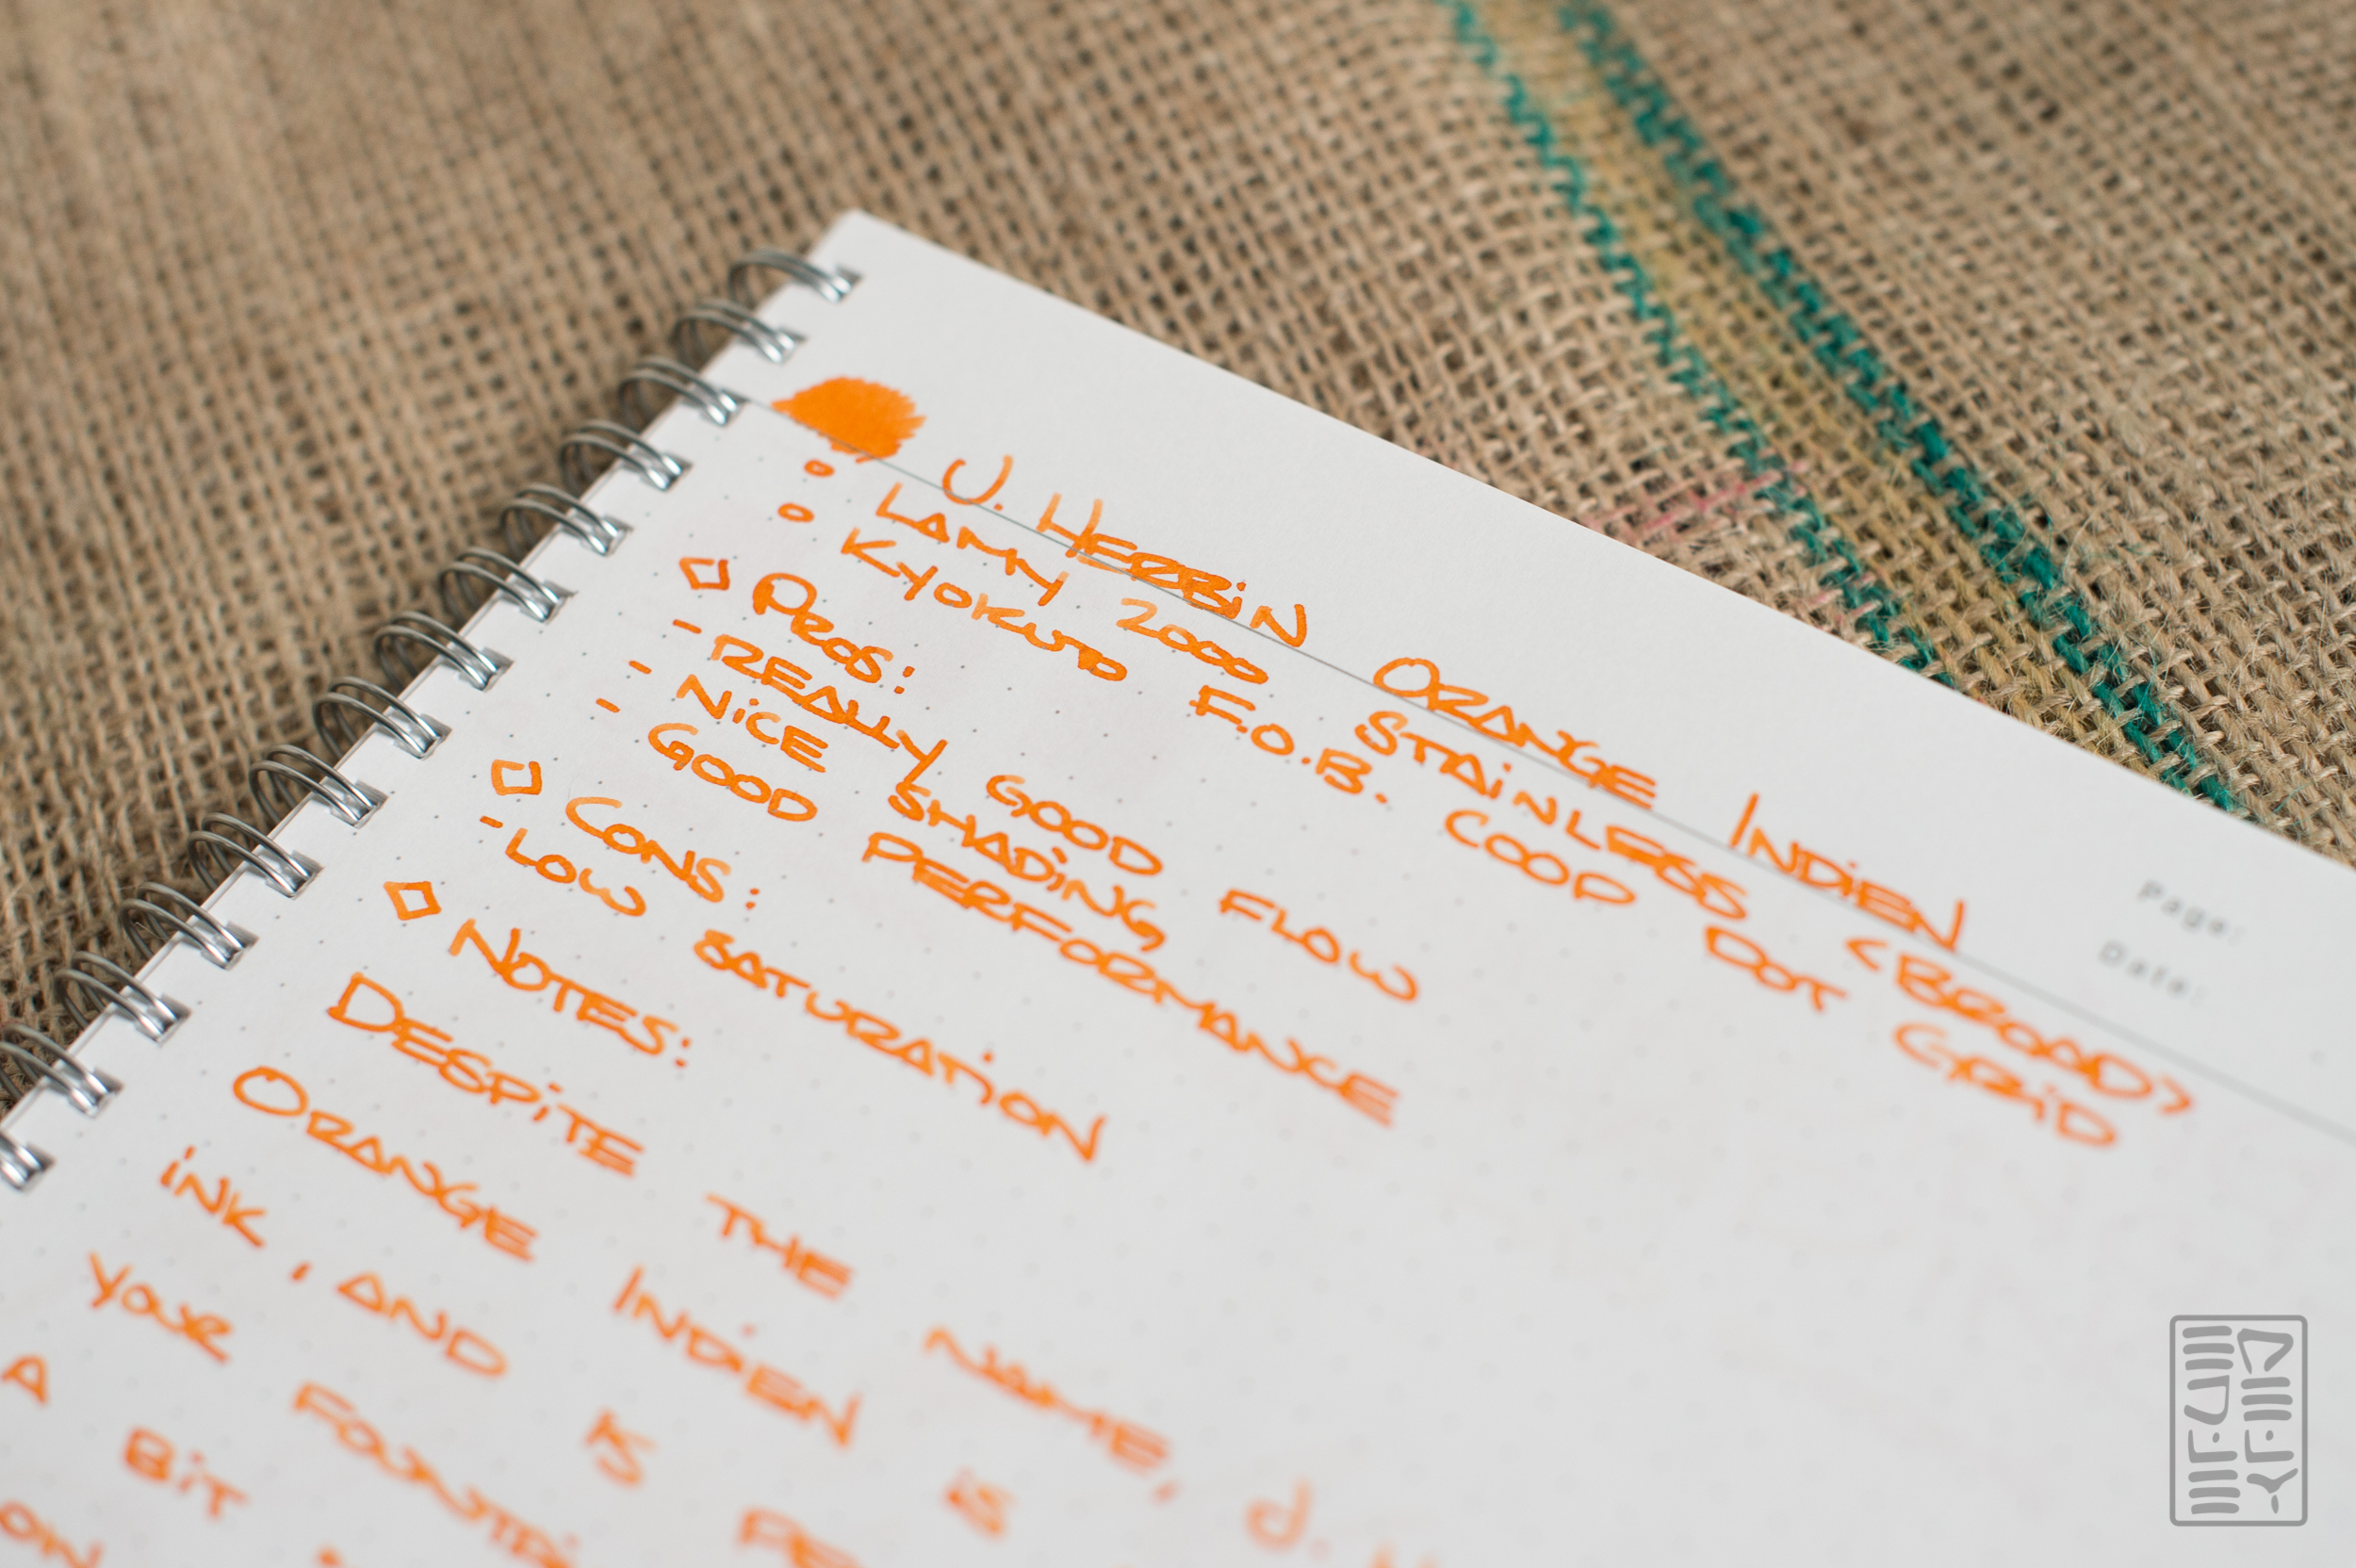 J. Herbin Orange Indien
Lamy 2000 Stainless <Broad>
Kyokuto F.O.B. COOP Dot Grid
Page:
Date:
Pros:
- Really Good Flow
- Nice Shading
- Good Performance
Cons:
- Low Saturation
Notes:
Despite the name, J.
Orange Indien is
ink, and is
your
A bit
on